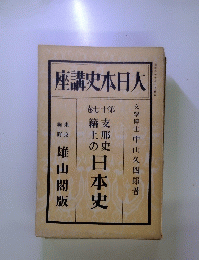 座講史本日大
文學博士 中山久四郎著
卷七十第
支那史
籍上の
日本史
東京
雄山閣版